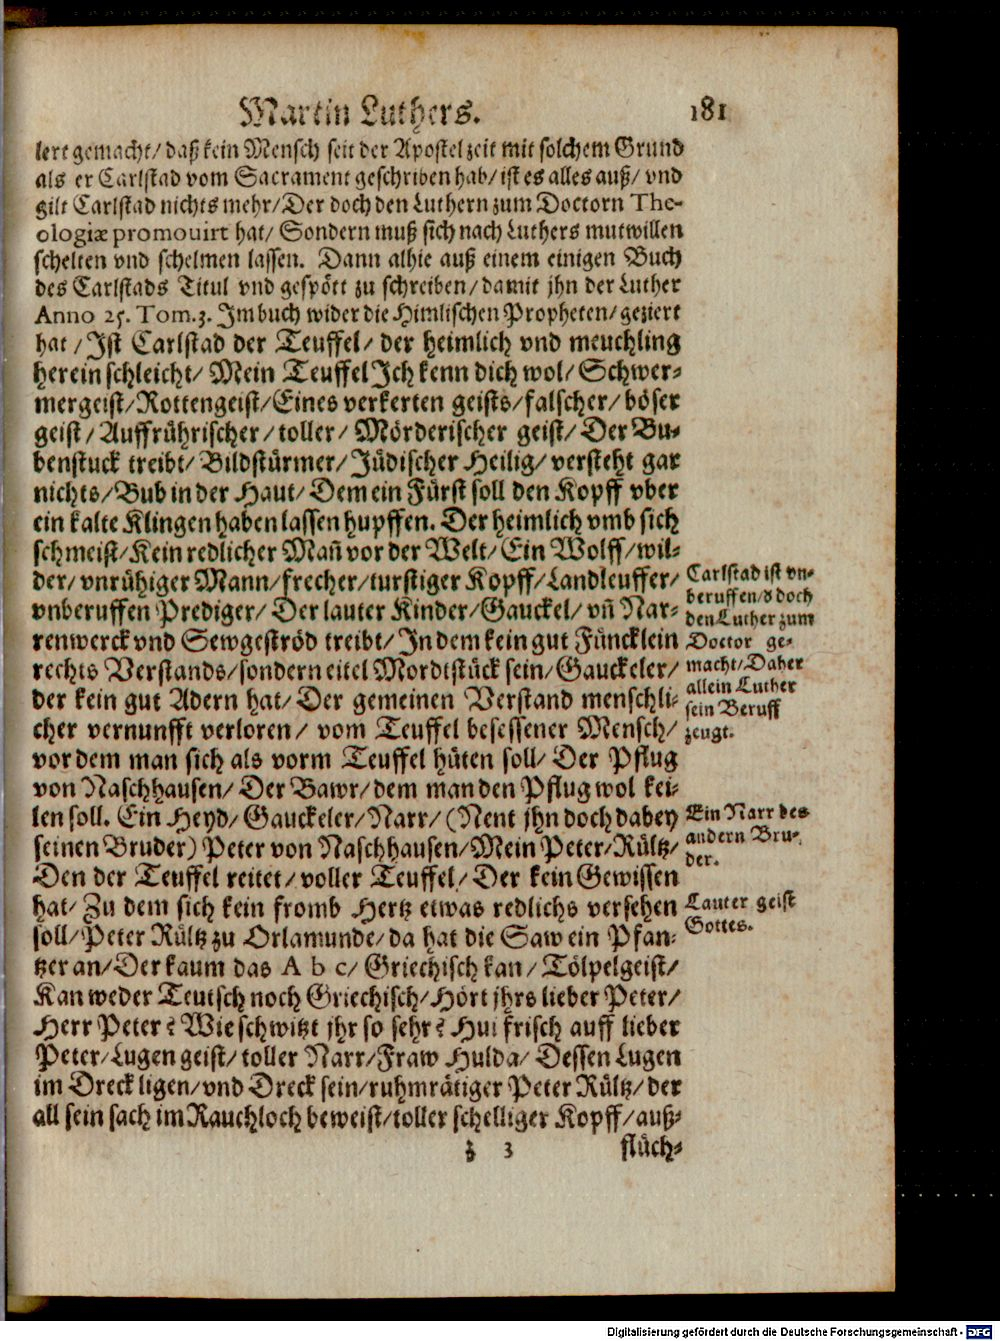 Martin Luthers. 181
lert gemacht/ daß kein Mensch seit der Apostel zeit mit solchem Grund
als er Carlstad vom Sacrament geschriben hab/ ist es alles auß/ vnd
gilt Carlstad nichts mehr/ Der doch den Luthern zum Doctorn The-
ologiæ promouirt hat/ Sondern muß sich nach Luthers mutwillen
schelten vnd schelmen lassen. Dann alhie auß einem einigen Buch
des Carlstads Titul vnd gespött zu schreiben/ damit jhn der Luther
Anno 25. Tom. 3. Im buch wider die Himlischen Propheten/ geziert
hat/ Ist Carlstad der Teuffel/ der heimlich vnd meuchling
herein schleicht/ Mein Teuffel Ich kenn dich wol/ Schwer-
mergeist/ Rottengeist/ Eines verkerten geists/ falscher/ böser
geist/ Auffrührischer/ toller/ Mörderischer geist/ Der Bu-
benstuck treibt/ Bildstürmer/ Jüdischer Heilig/ versteht gar
nichts/ Bub in der Haut/ Dem ein Fürst soll den Kopff vber
ein kalte Klingen haben lassen hupffen. Der heimlich vmb sich
schmeist/ Kein redlicher Mañ vor der Welt/ Ein Wolff/ wil-
der/ vnrühiger Mann/ frecher/ turstiger Kopff/ Landleuffer/
vnberuffen Prediger/ Der lauter Kinder/ Gauckel/ vñ Nar-
renwerck vnd Sewgeströd treibt/ In dem kein gut Füncklein
rechts Verstands/ sondern eitel Mordtstück sein/ Gauckeler/
der kein gut Adern hat/ Der gemeinen Verstand menschli-
cher vernunfft verloren/ vom Teuffel besessener Mensch/
vor dem man sich als vorm Teuffel hüten soll/ Der Pflug
von Naschhausen/ Der Bawr/ dem man den Pflug wol kei-
len soll. Ein Heyd/ Gauckeler/ Narr/ (Nent jhn doch dabey
seinen Bruder) Peter von Naschhausen/ Mein Peter/ Rültz/
Den der Teuffel reitet/ voller Teuffel/ Der kein Gewissen
hat/ Zu dem sich kein fromb Hertz etwas redlichs versehen
soll/ Peter Rültz zu Orlamunde/ da hat die Saw ein Pfan-
tzer an/ Der kaum das A b c/ Griechisch kan/ Tölpelgeist/
Kan weder Teutsch noch Griechisch/ Hört jhrs lieber Peter/
Herr Peter? Wie schwitzt jhr so sehr? Hui frisch auff lieber
Peter/ Lugen geist/ toller Narr/ Fraw Hulda/ Dessen Lugen
im Dreck ligen/ vnd Dreck sein/ ruhmrätiger Peter Rültz/ der
all sein sach im Rauchloch beweist/ toller schelliger Kopff/ auß-
z 3 flüch-
Carlstad ist vn-
beruffen/ d doch
den Luther zum
Doctor ge-
macht/ Daher
allein Luther
sein Beruff
zeugt.
Ein Narr des
andern Bru-
der.
Lauter geist
Gottes.
Digitalisierung gefördert durch die Deutsche Forschungsgemeinschaft - DFG